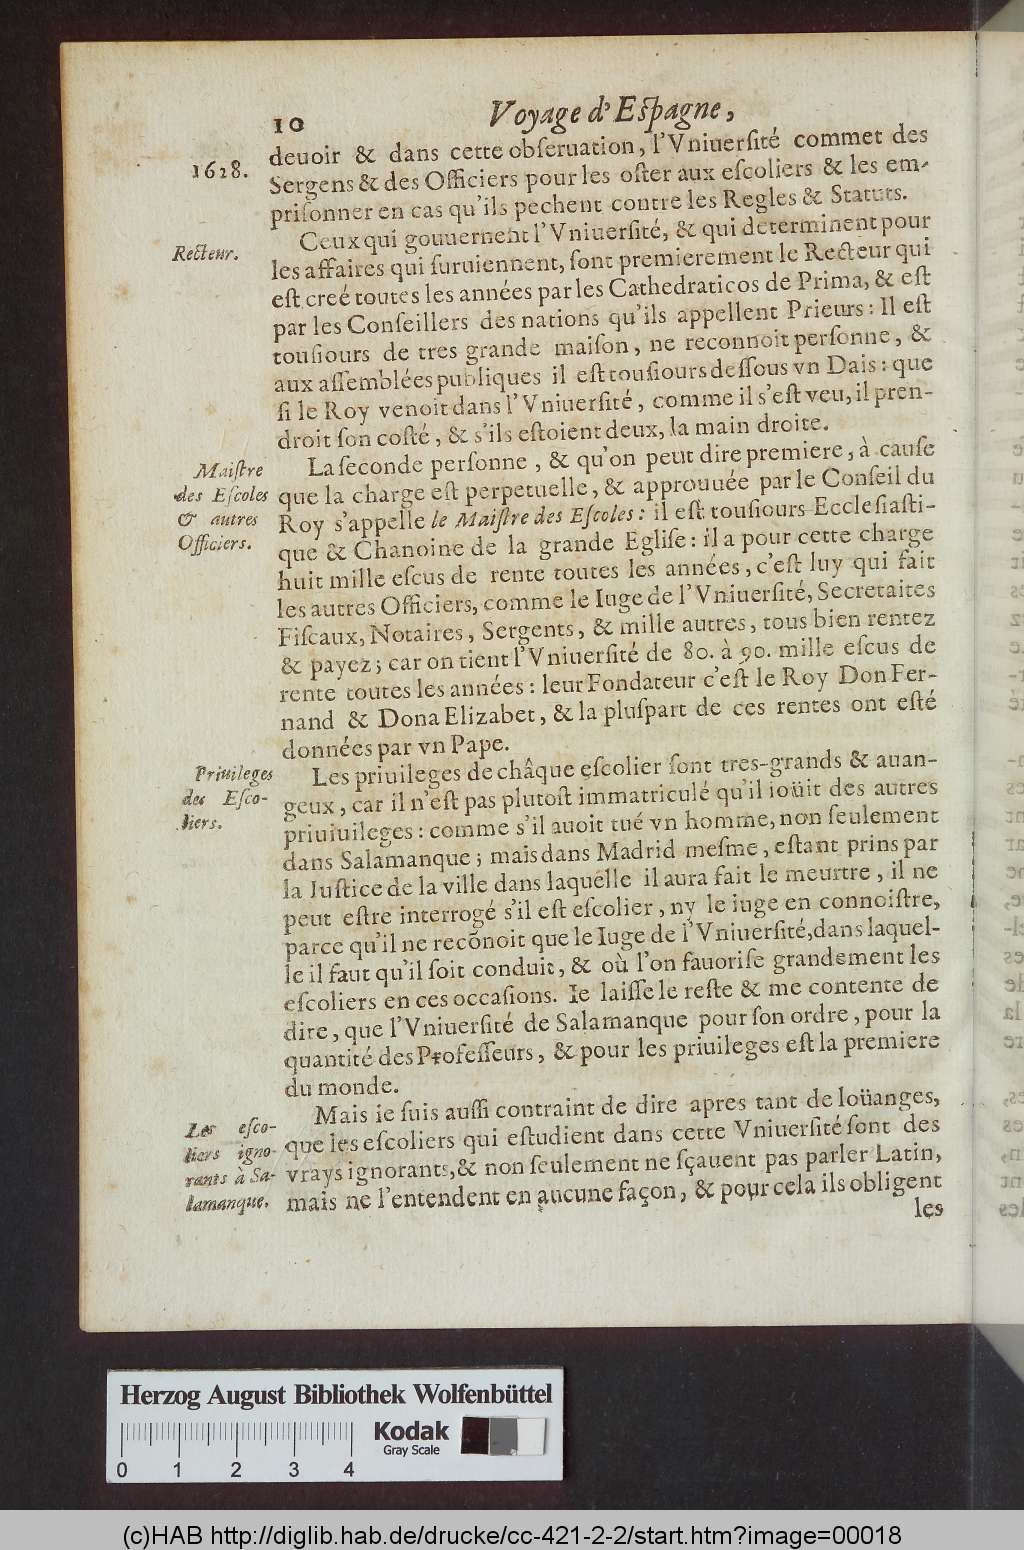 10 Voyage d'Espagne,
1628.
deuoir & dans cette obſeruation, l'Vniuerſité commet des
Sergens & des Officiers pour les oſter aux eſcoliers & les em-
priſonner en cas qu'ils pechent contre les Regles & Statuts.
Recteur.
Ceux qui gouuernent l'Vniuerſité, & qui determinent pour
les affaires qui ſuruiennent, ſont premierement le Recteur qui
eſt creé toutes les années par les Cathedraticos de Prima, & eſt
par les Conſeillers des nations qu'ils appellent Prieurs: Il eſt
touſiours de tres grande maiſon, ne reconnoit perſonne, &
aux aſſemblées publiques il eſt touſiours deſſous vn Dais: que
ſi le Roy venoit dans l'Vniuerſité, comme il s'eſt veu, il pren-
droit ſon coſté, & s'ils eſtoient deux, la main droite.
Maiſtre
des Eſcoles
& autres
Officiers.
La ſeconde perſonne, & qu'on peut dire premiere, à cauſe
que la charge eſt perpetuelle, & approuuée par le Conſeil du
Roy s'appelle le Maiſtre des Eſcoles: il eſt touſiours Eccleſiaſti-
que & Chanoine de la grande Egliſe: il a pour cette charge
huit mille eſcus de rente toutes les années, c'eſt luy qui fait
les autres Officiers, comme le Iuge de l'Vniuerſité, Secretaires
Fiſcaux, Notaires, Sergents, & mille autres, tous bien rentez
& payez; car on tient l'Vniuerſité de 80. à 90. mille eſcus de
rente toutes les années: leur Fondateur c'eſt le Roy Don Fer-
nand & Dona Elizabet, & la pluſpart de ces rentes ont eſté
données par vn Pape.
Priuileges
des Eſco-
liers.
Les priuileges de châque eſcolier ſont tres-grands & auan-
geux, car il n'eſt pas plutoſt immatriculé qu'il ioüit des autres
priuiuileges: comme s'il auoit tué vn homme, non ſeulement
dans Salamanque; mais dans Madrid meſme, eſtant prins par
la Juſtice de la ville dans laquelle il aura fait le meurtre, il ne
peut eſtre interrogé s'il eſt eſcolier, ny le iuge en connoiſtre,
parce qu'il ne recõnoit que le Iuge de l'Vniuerſité, dans laquel-
le il faut qu'il ſoit conduit, & où l'on fauoriſe grandement les
eſcoliers en ces occaſions. Ie laiſſe le reſte & me contente de
dire, que l'Vniuerſité de Salamanque pour ſon ordre, pour la
quantité des Profeſſeurs, & pour les priuileges eſt la premiere
du monde.
Les eſco-
liers igno-
rants à Sa-
lamanque.
Mais ie ſuis auſſi contraint de dire apres tant de loüanges,
que les eſcoliers qui eſtudient dans cette Vniuerſité ſont des
vrays ignorants, & non ſeulement ne ſçauent pas parler Latin,
mais ne l'entendent en aucune façon, & pour cela ils obligent
les
Herzog August Bibliothek Wolfenbüttel
Kodak
Gray Scale
0 1 2 3 4
(c)HAB http://diglib.hab.de/drucke/cc-421-2-2/start.htm?image=00018